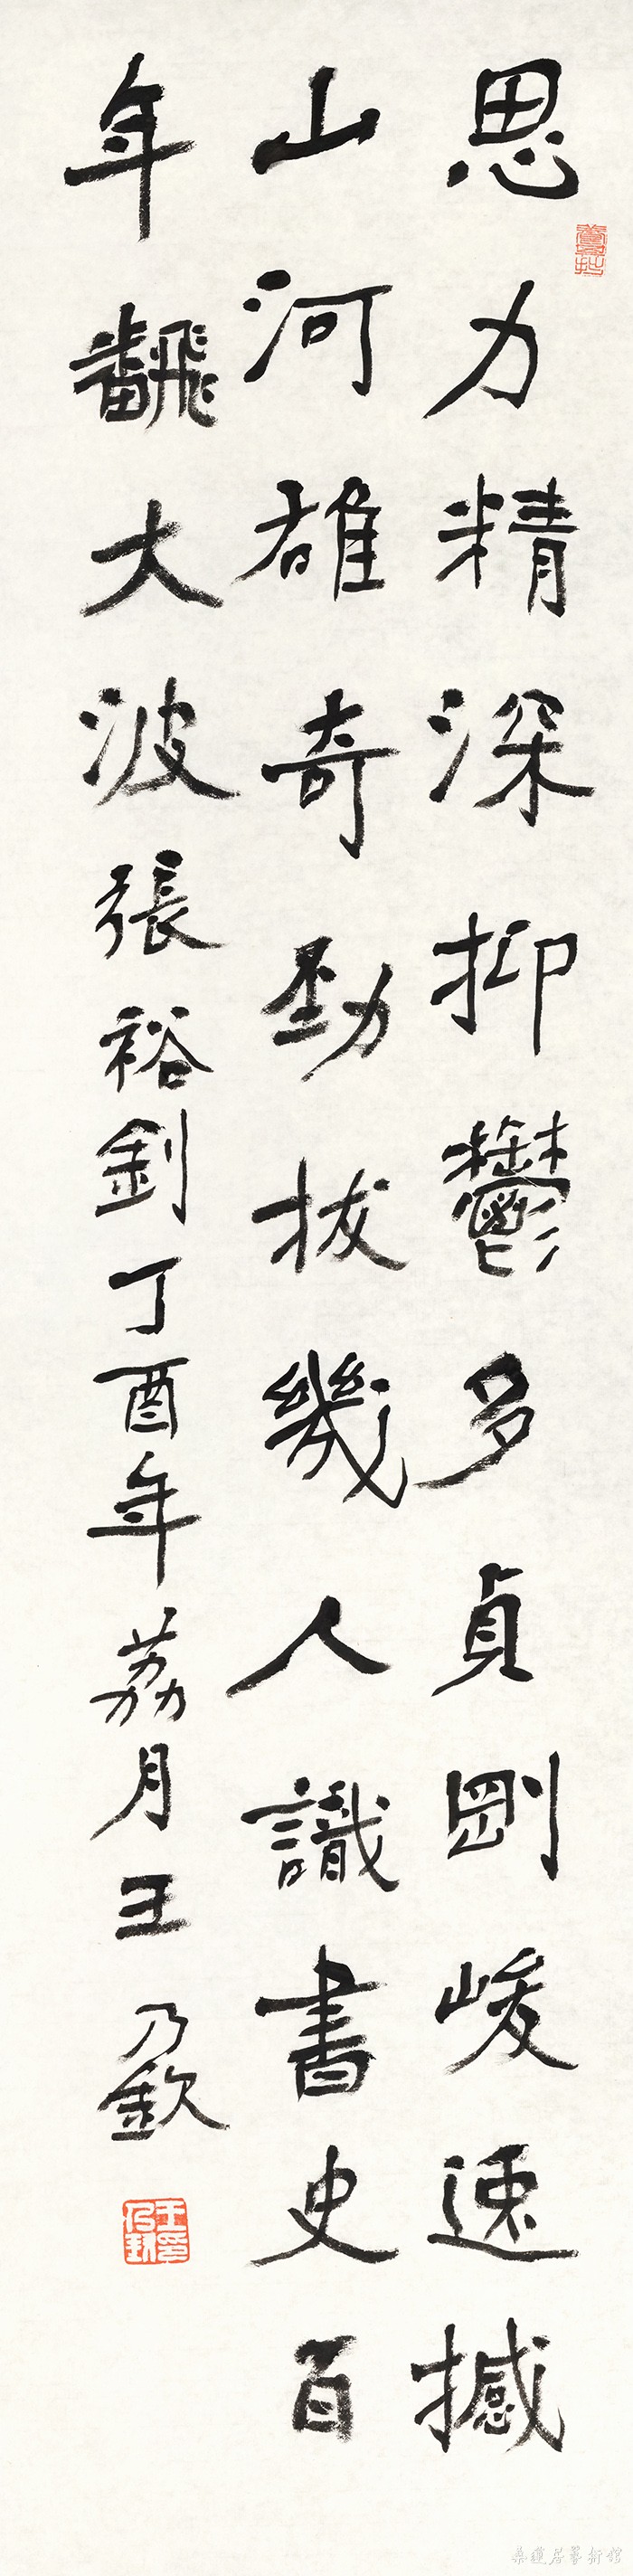 思力精深抑鬱多貞剛峻速撼
山河雄奇勁拔幾人識書史百
年飜大波張裕釗丁酉年荔月王乃欽
王印乃欽
桑蓮居藝術館